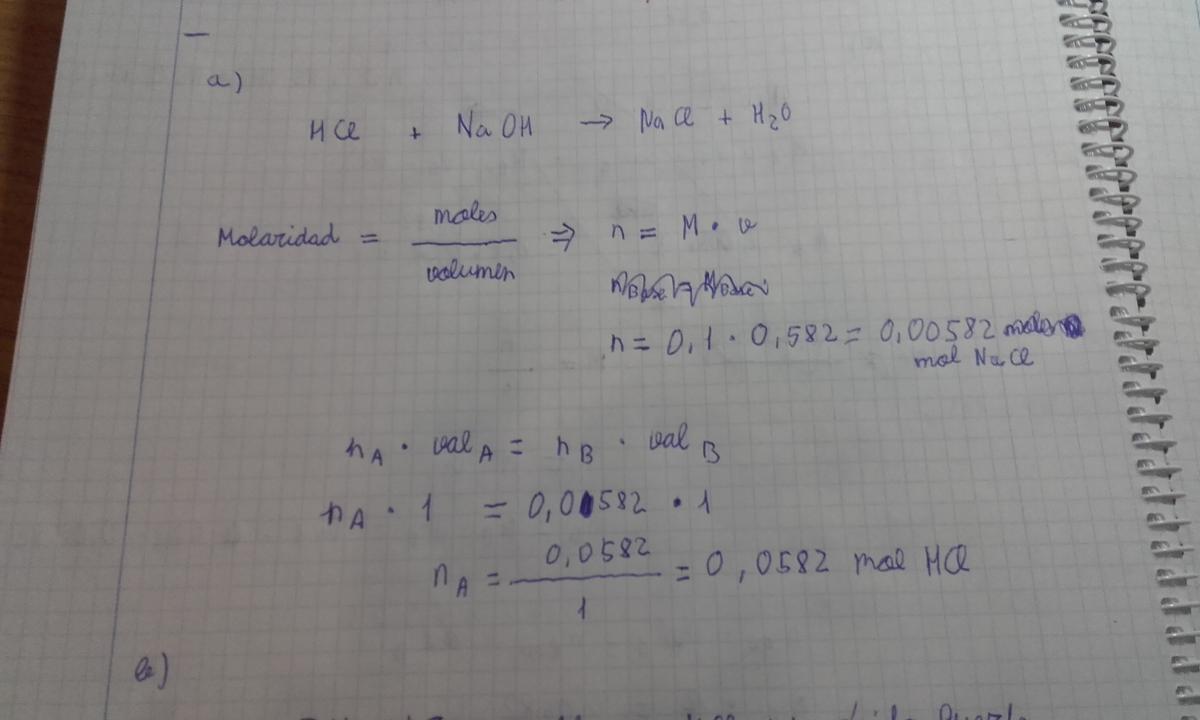 a)
HCl + NaOH → NaCl + H₂O
Molaridad = moles / volumen ⇒ n = M · v
n = 0,1 · 0,582 = 0,00582 moles
mol NaCl
n_A · val_A = n_B · val_B
n_A · 1 = 0,0582 · 1
n_A = 0,0582 / 1 = 0,0582 mol HCl
b)